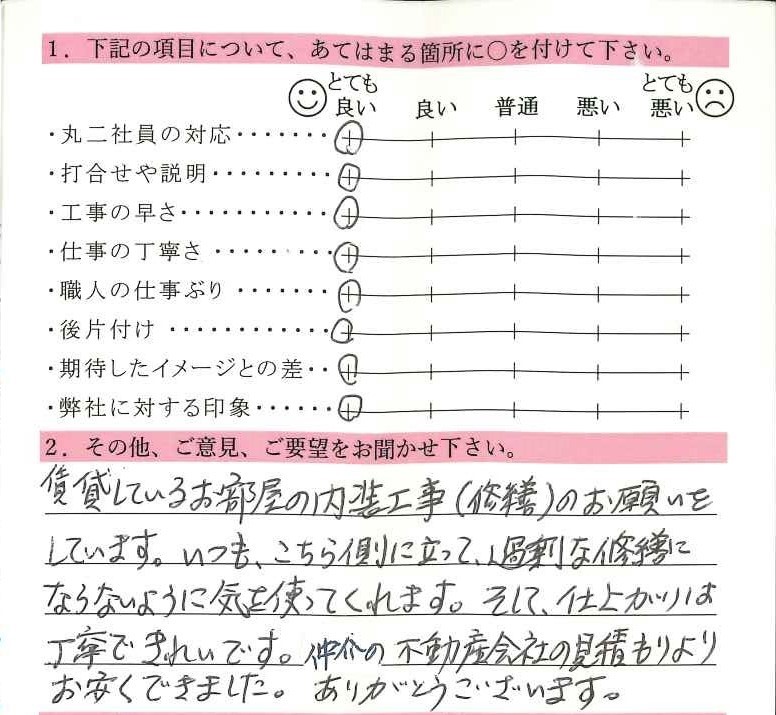 1．下記の項目について、あてはまる箇所に○を付けて下さい。
とても良い 良い 普通 悪い とても悪い
・丸二社員の対応・・・・・・・
・打合せや説明・・・・・・・・・
・工事の早さ・・・・・・・・・・・
・仕事の丁寧さ・・・・・・・・・
・職人の仕事ぶり・・・・・・・
・後片付け・・・・・・・・・・・・
・期待したイメージとの差・・
・弊社に対する印象・・・・・・
2．その他、ご意見、ご要望をお聞かせ下さい。
賃貸しているお部屋の内装工事(修繕)のお願いを
しています。いつも、こちら側に立って、過剰な修繕に
ならないように気を使ってくれます。そして、仕上がりは
丁寧できれいです。仲介の不動産会社の見積もりより
お安くできました。ありがとうございます。